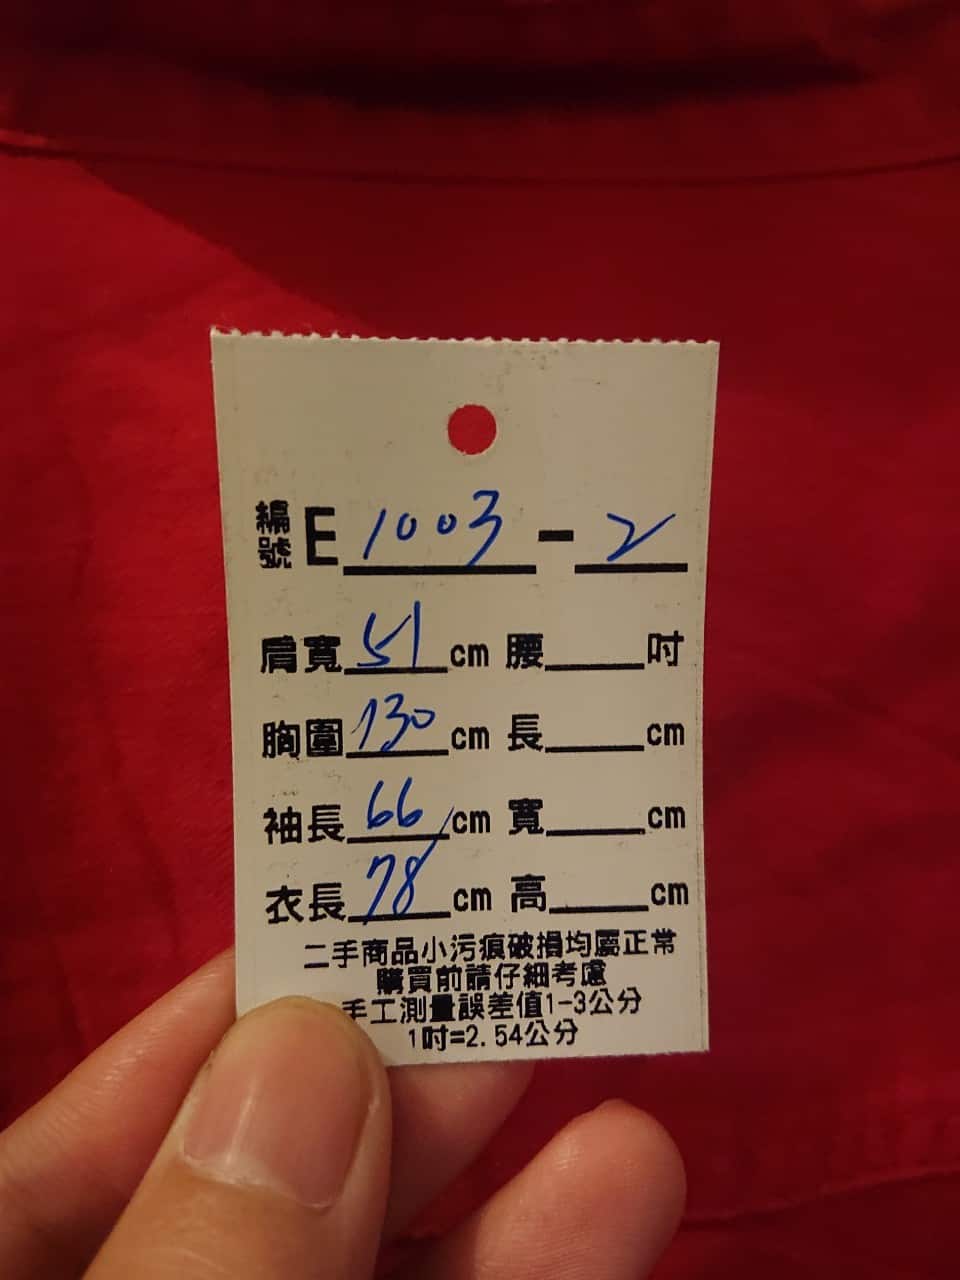 編號 E 1003 - 2
肩寬 51 cm 腰____吋
胸圍 130 cm 長____cm
袖長 66 cm 寬____cm
衣長 78 cm 高____cm
二手商品小污痕破損均屬正常
購買前請仔細考慮
手工測量誤差值1-3公分
1吋=2.54公分